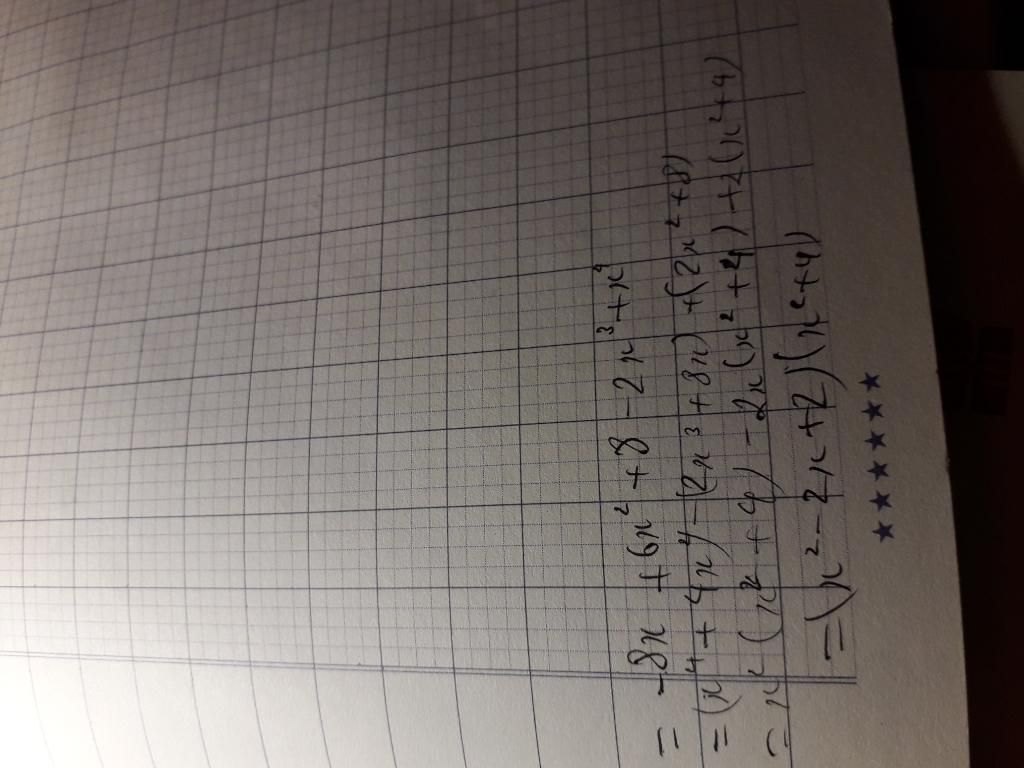 = -8x + 6x² + 8 - 2x³ + x⁴
= (x⁴ + 4x²) - (2x³ + 8x) + (2x² + 8)
= x²(x² + 4) - 2x(x² + 4) + 2(x² + 4)
= (x² - 2x + 2)(x² + 4)